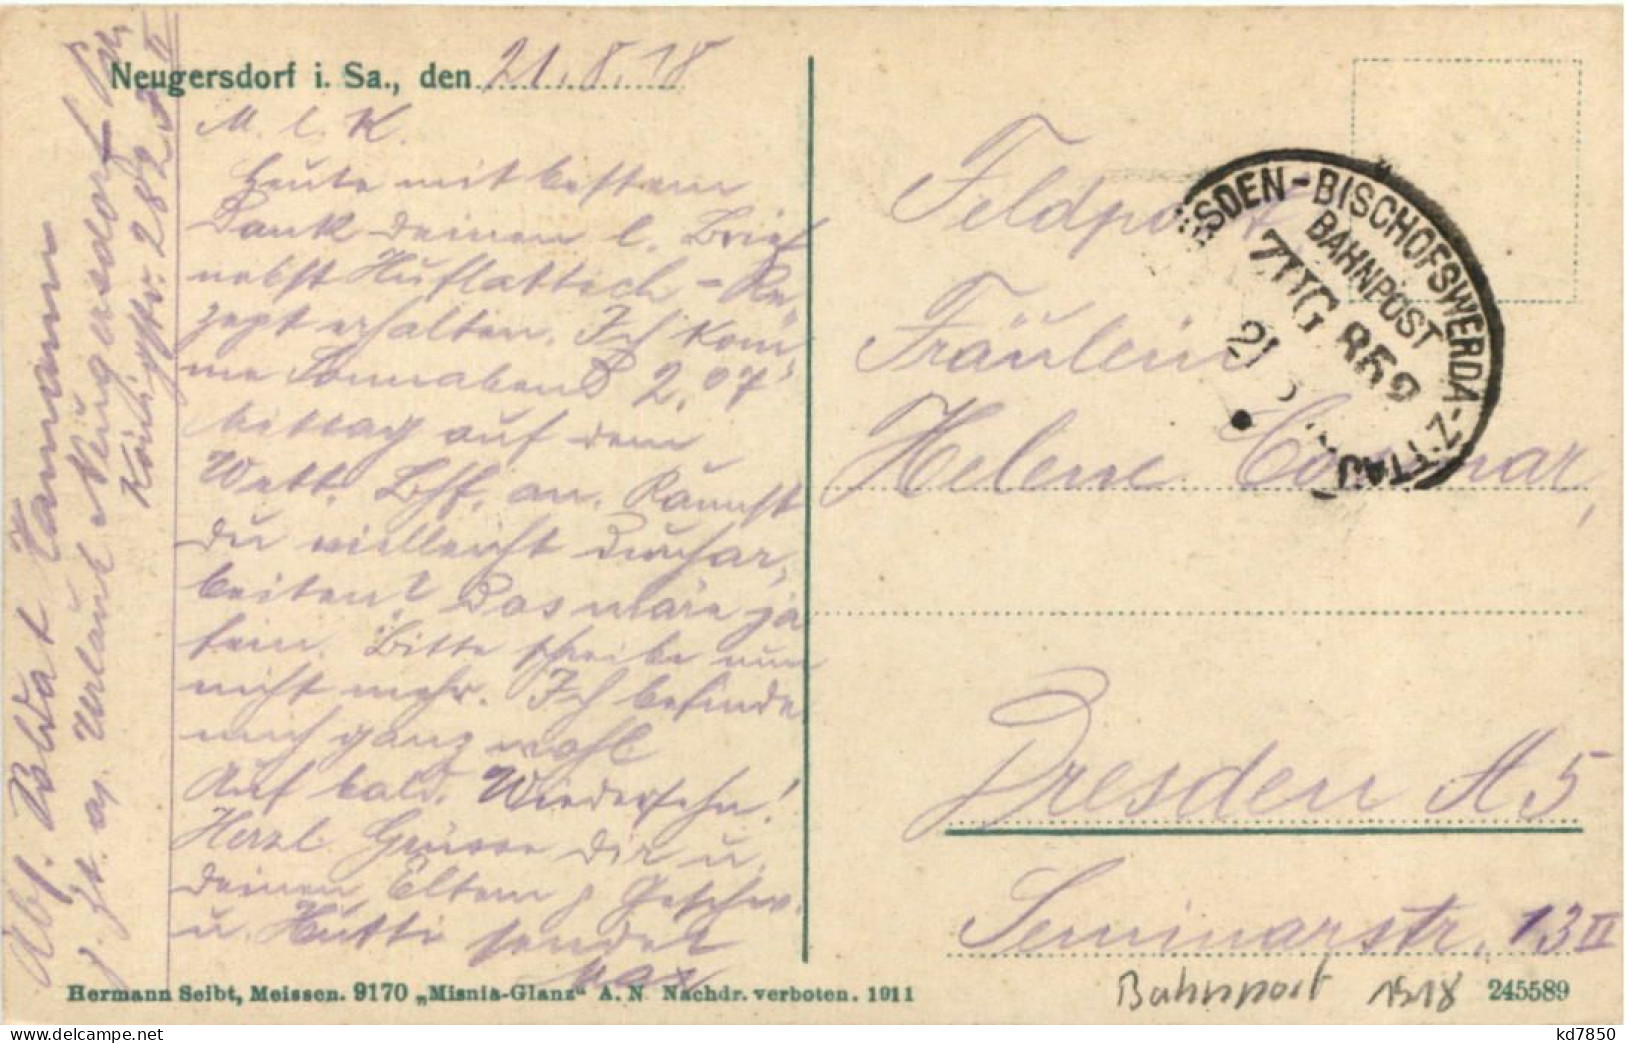 Neugersdorf i. Sa., den 21.8.18
M. l. K.
Heute mit bestem
Dank deinen l. Brief
nebst Huflattich-Re-
zept erhalten. Ich kom-
me Sonnabend 2.07
Mittag auf dem
Wett. Bhf. an. Kannst
du vielleicht durchar-
beiten? Das wäre ja
fein. Bitte schreibe nun
nicht mehr. Ich befinde
mich ganz wohl.
Auf bald. Wiedersehn!
Herzl. Grüsse dir u.
deinen Eltern, Geschw.
u. sendet
Max
Abs. Soldat Hamann
z. Zt. a. Urlaub Neugersdorf i. Sa.
282
Feldpost
Fräulein
Helene
Dresden A 5
Seminarstr. 13 II
DRESDEN-BISCHOFSWERDA-ZITTAU
BAHNPOST
ZUG 869
21
Hermann Seibt, Meissen. 9170 „Misnia-Glanz“ A. N. Nachdr. verboten. 1911
Bahnpost 1918
245589
kd7850